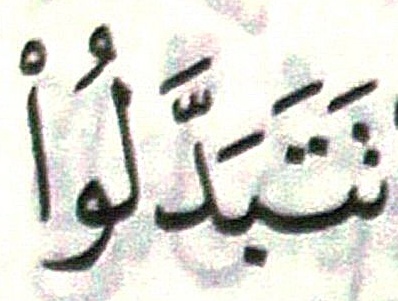 نَتَبَدَّلُواْ